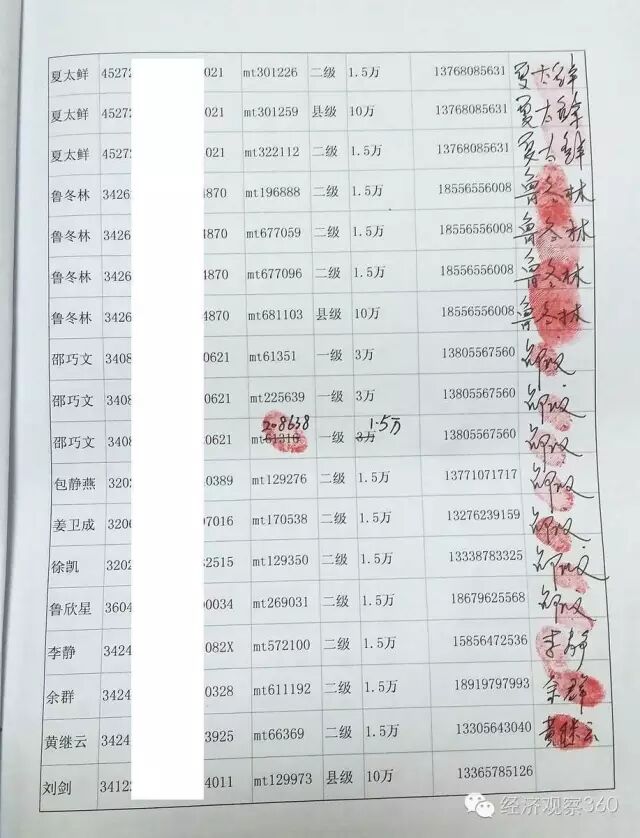 夏太鲜 45272 021 mt301226 二级 1.5万 13768085631 夏太鲜
夏太鲜 45272 021 mt301259 县级 10万 13768085631 夏太鲜
夏太鲜 45272 021 mt322112 二级 1.5万 13768085631 夏太鲜
鲁冬林 34261 4870 mt196888 二级 1.5万 18556556008 鲁冬林
鲁冬林 3426 4870 mt677059 二级 1.5万 18556556008 鲁冬林
鲁冬林 3426 4870 mt677096 二级 1.5万 18556556008 鲁冬林
鲁冬林 3426 4870 mt681103 县级 10万 18556556008 鲁冬林
邵巧文 3408 0621 mt61351 一级 3万 13805567560
邵巧文 3408 0621 mt225639 一级 3万 13805567560
208638 1.5万
邵巧文 3408 0621 mt61310 一级 3万 13805567560
包静燕 3202 0389 mt129276 二级 1.5万 13771071717
姜卫成 3206 7016 mt170538 二级 1.5万 13276239159
徐凯 3202 2515 mt129350 二级 1.5万 13338783325
鲁欣星 3604 0034 mt269031 二级 1.5万 18679625568
李静 3424 082X mt572100 二级 1.5万 15856472536 李静
余群 3424 0328 mt611192 二级 1.5万 18919797993 余群
黄继云 3424 3925 mt66369 二级 1.5万 13305643040 黄继云
刘剑 3412 4011 mt129973 县级 10万 13365785126
经济观察360